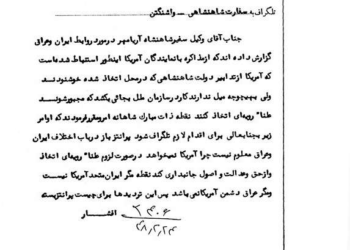 تلگرافی به سفارت شاهنشاهی - واشنگتن
جناب آقای وکیل سفیر شاهنشاه آریامهر در مورد روابط ایران و عراق
گزارش داده اند که از مذاکره با نمایندگان آمریکا اینطور استنباط شده است
که آمریکا از تدابیر دولت شاهنشاهی که در محل اتخاذ شده خوشنودند
ولی بهیچوجه میل ندارند کار درسازمان ملل بجائی بکشد که مجبور شوند
علنا" رویه‌ای اتخاذ کنند نقطه ذات مبارک شاهانه امر و مقرر فرمودند که اوامر
زیر بجنابعالی برای اقدام لازم تلگراف شود پرانتز باز در باب اختلاف ایران
و عراق معلوم نیست چرا آمریکا نمیخواهد در صورت لزوم علنا" رویه‌ای اتخاذ
و از حق و عدالت و اصول جانبداری کند نقطه مگر ایران متحد آمریکا نیست
و مگر عراق دشمن آمریکا نمی باشد پس این تردیدها برای چیست پرانتز بسته
افشار
۲۴۰۶
۴۸/۲/۲۴